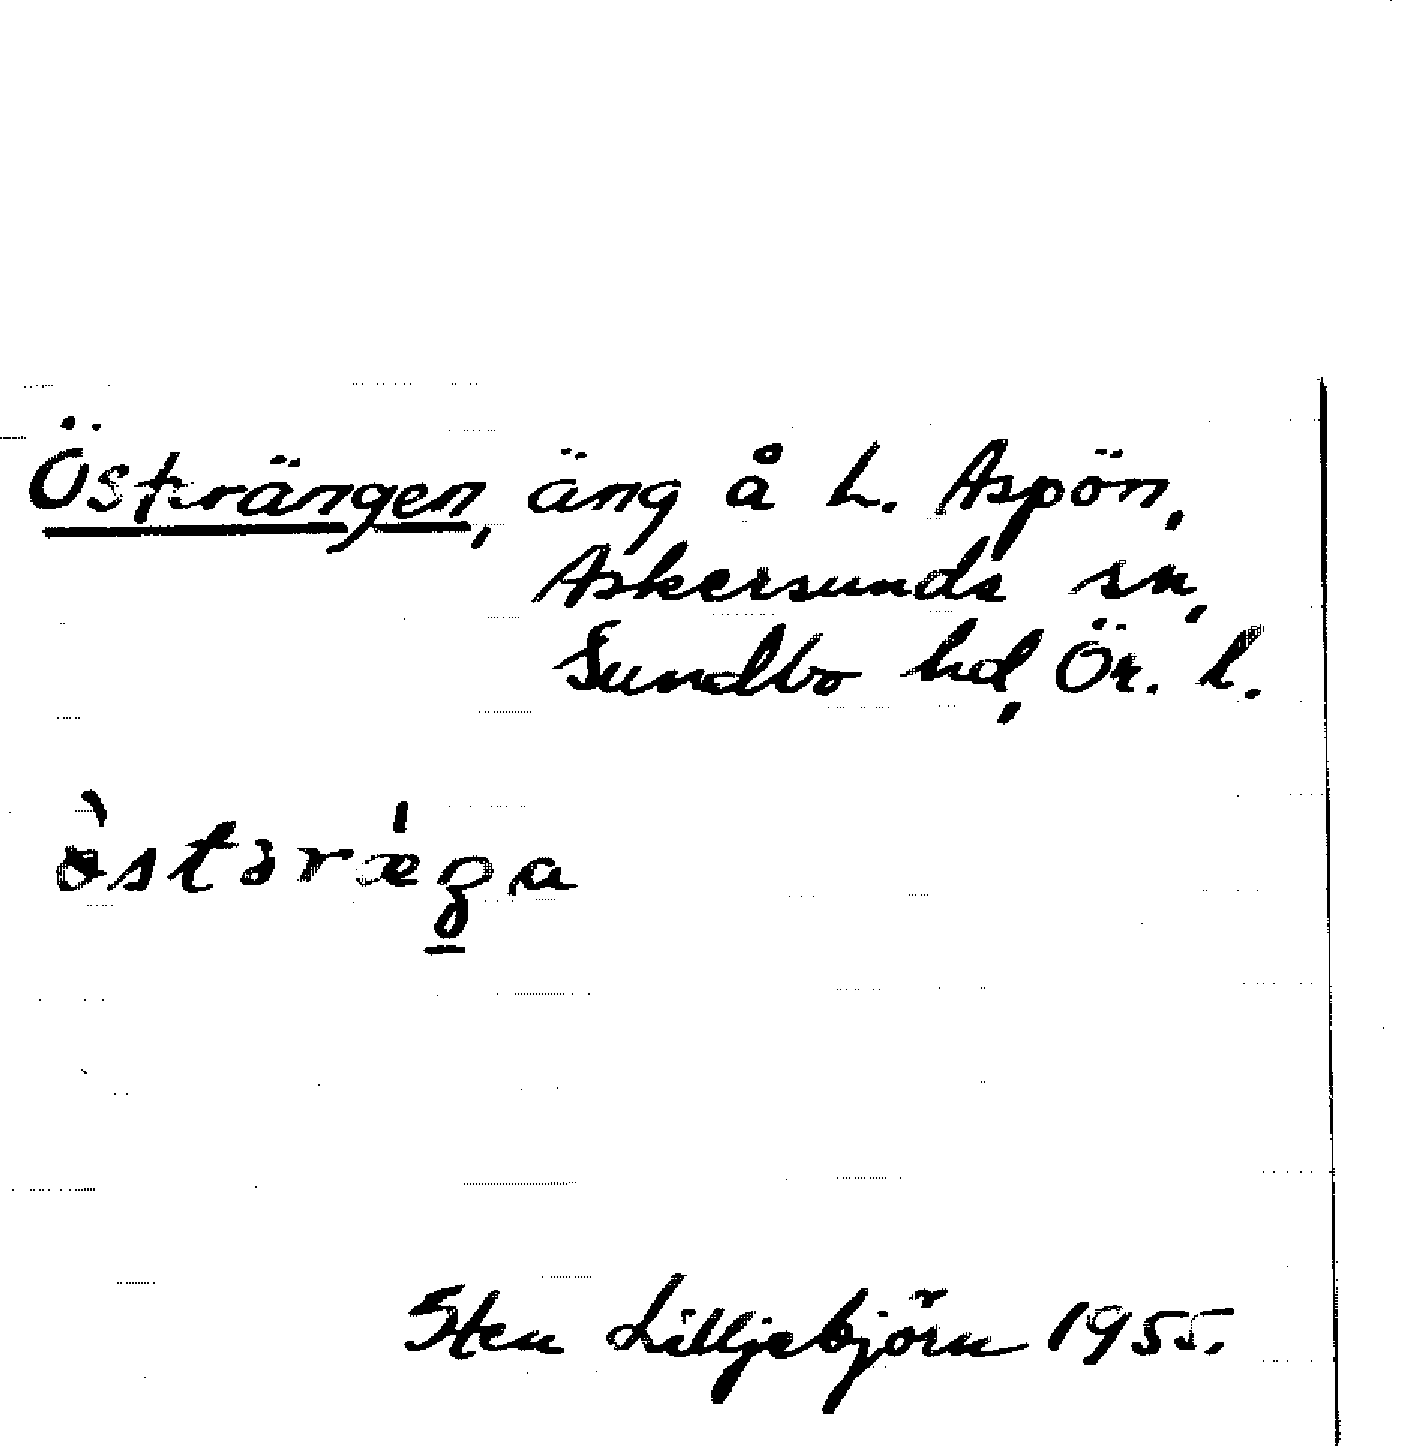 Österängen, äng å L. Aspön,
Askersunds sn,
Sundbo hd, Ör. l.
östəræga
Sten Lilljebjörn 1955.